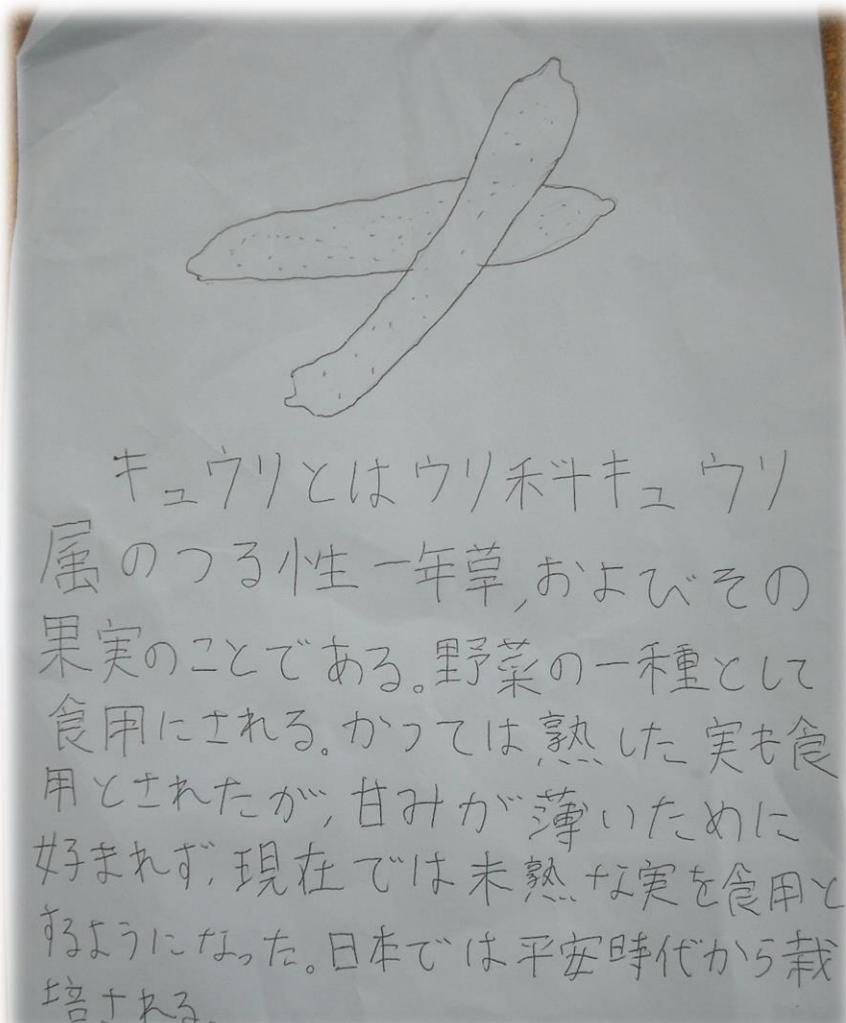 キュウリとはウリ科キュウリ
属のつる性一年草,およびその
果実のことである。野菜の一種として
食用にされる。かつては熟した実も食
用とされたが,甘みが薄いために
好まれず,現在では未熟な実を食用と
するようになった。日本では平安時代から栽
培される。